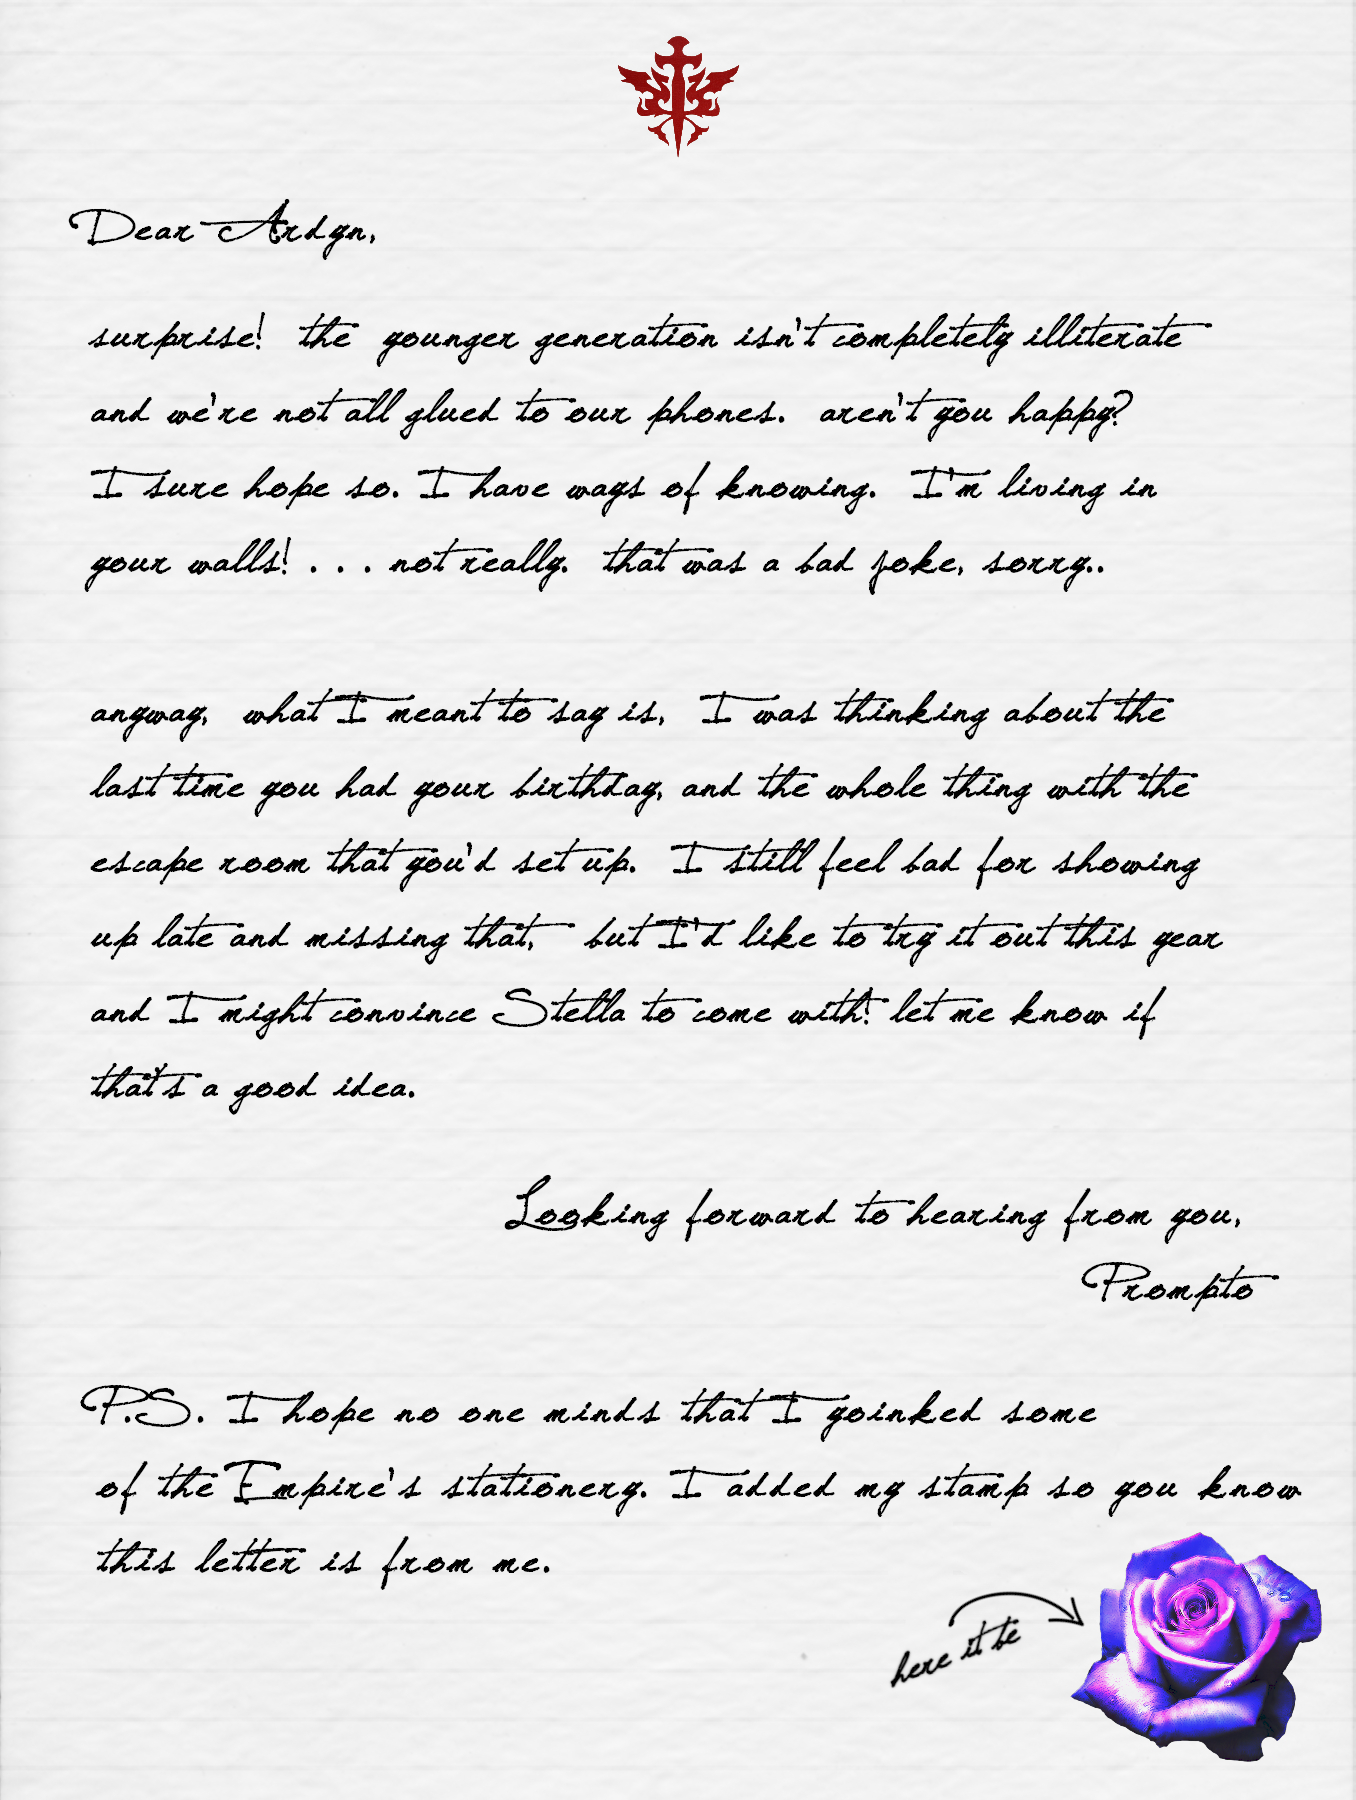 Dear Ardyn,
surprise! the younger generation isn't completely illiterate
and we're not all glued to our phones. aren't you happy?
I sure hope so. I have ways of knowing. I'm living in
your walls! . . . not really. that was a bad joke, sorry..
anyway, what I meant to say is, I was thinking about the
last time you had your birthday, and the whole thing with the
escape room that you'd set up. I still feel bad for showing
up late and missing that, but I'd like to try it out this year
and I might convince Stella to come with! let me know if
that's a good idea.
Looking forward to hearing from you,
Prompto
P.S. I hope no one minds that I yoinked some
of the Empire's stationery. I added my stamp so you know
this letter is from me.
here it be